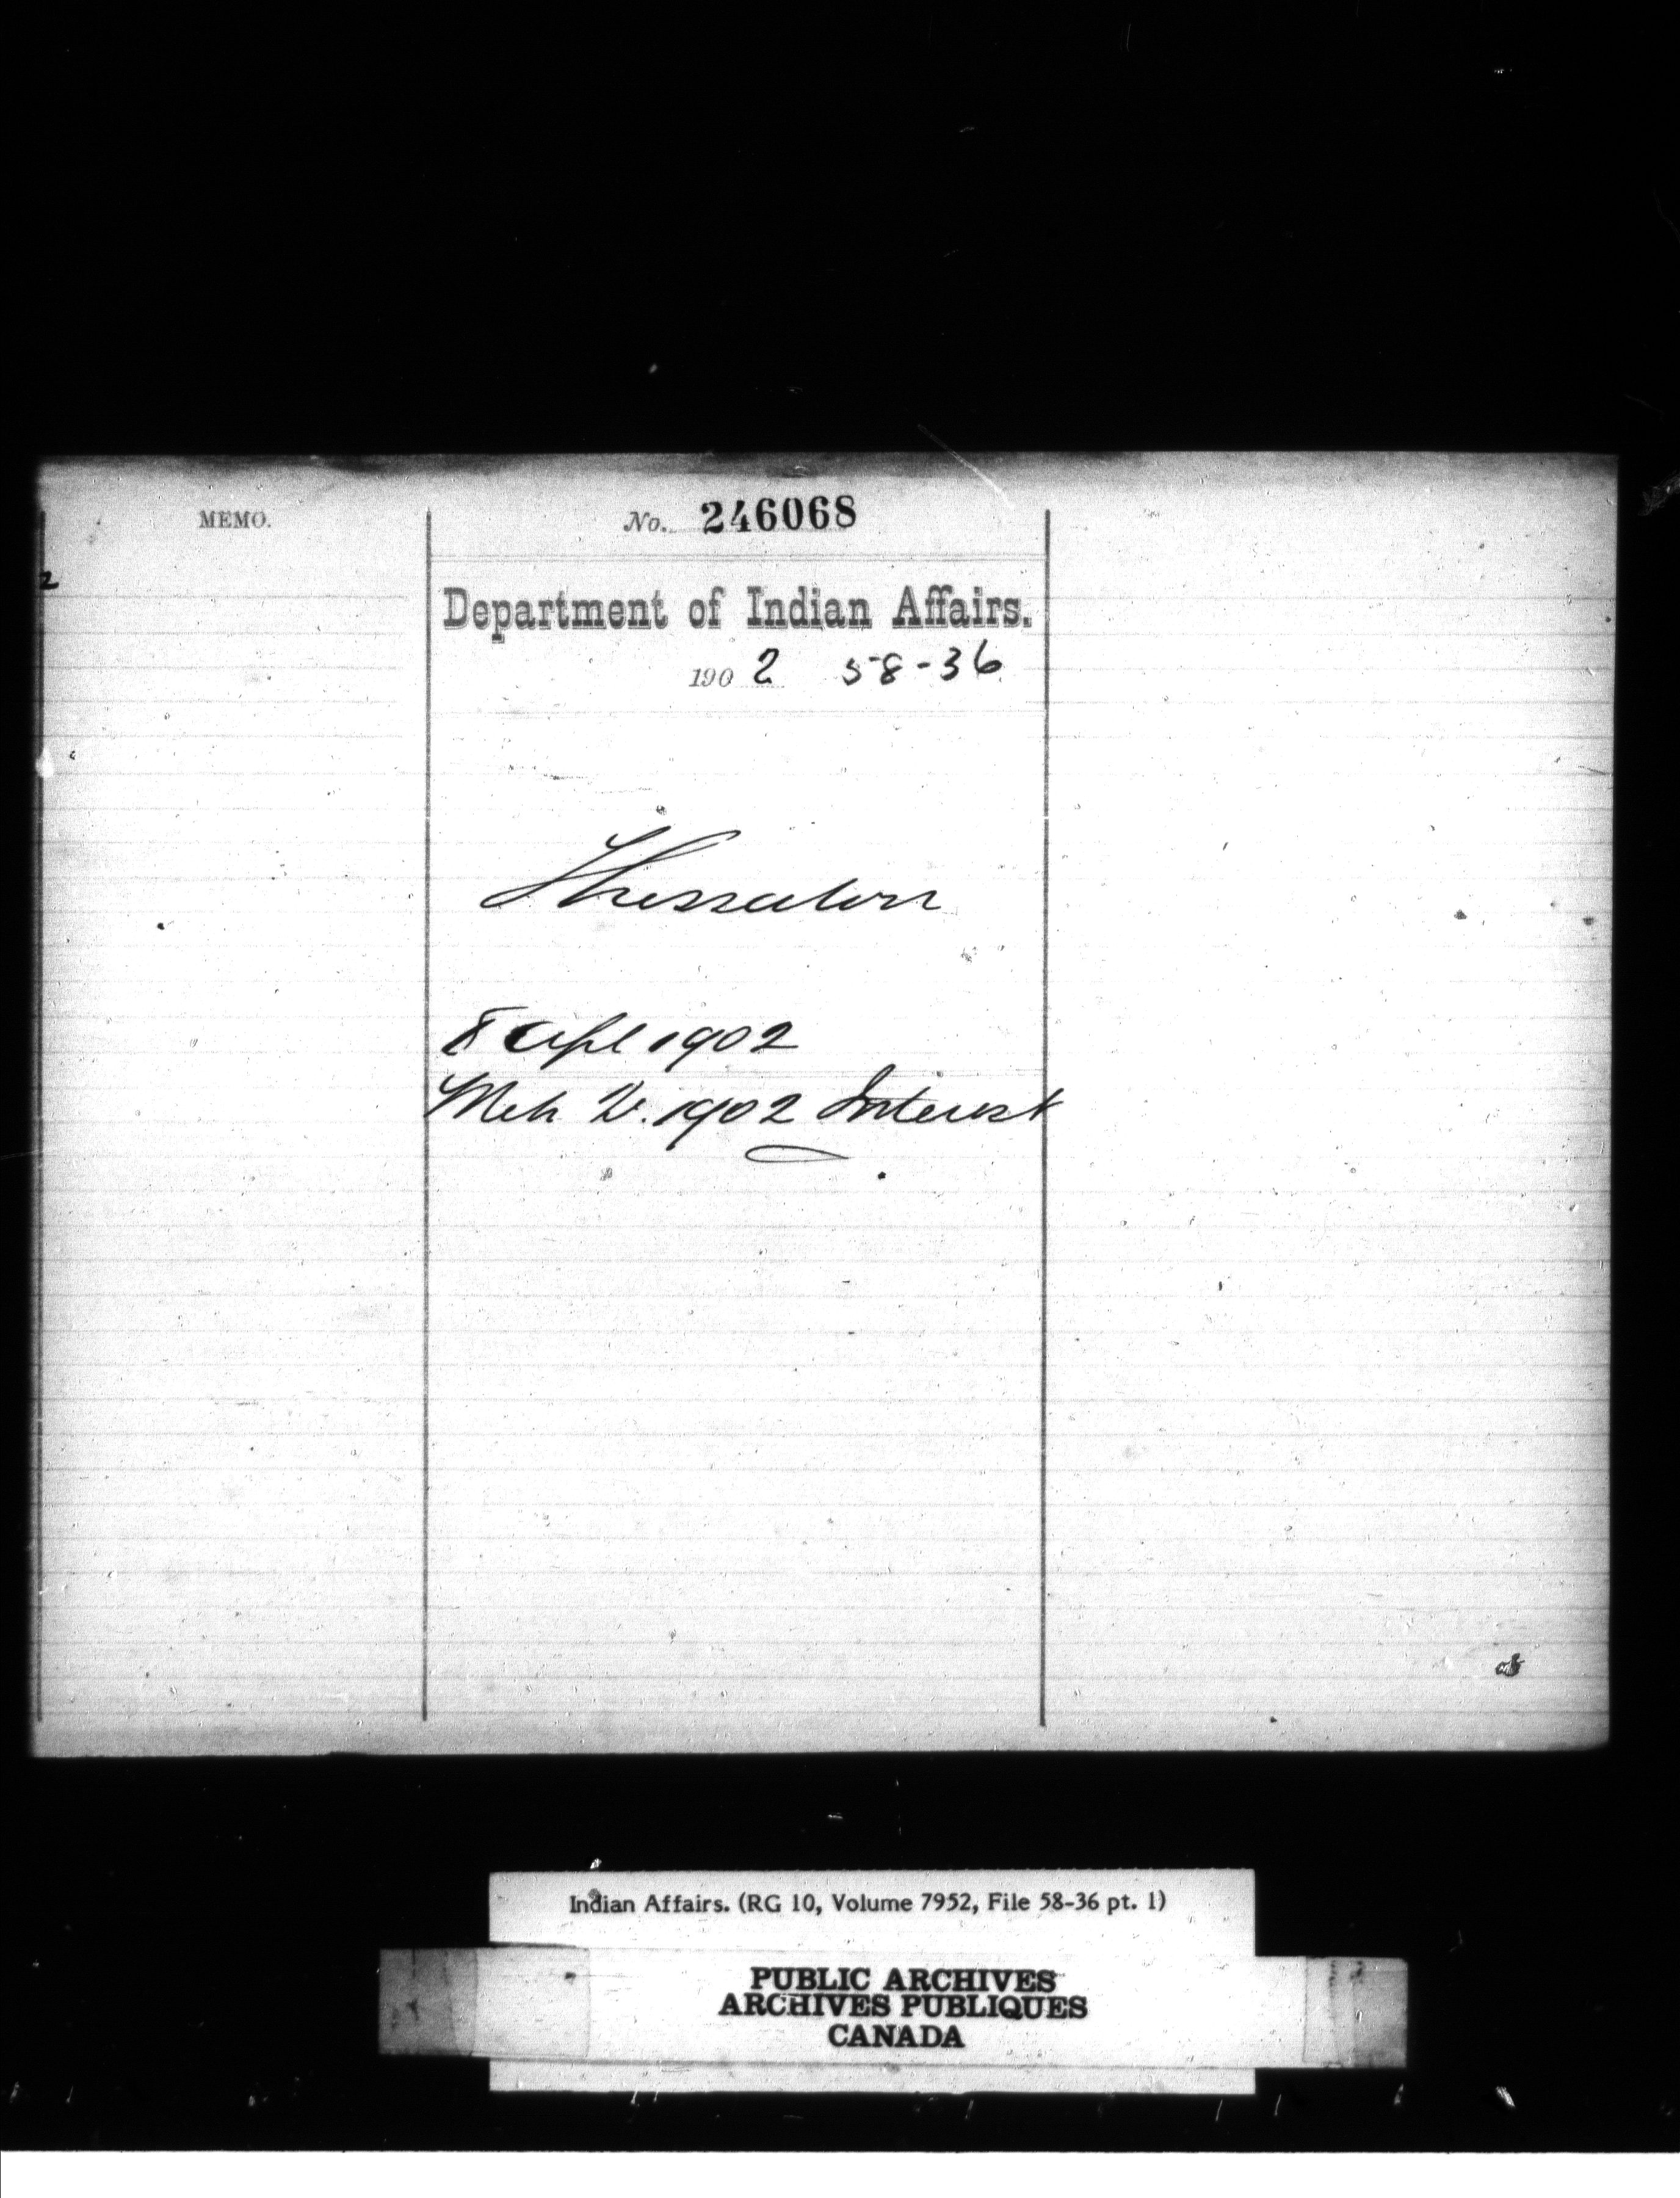 MEMO.
No. 246068
2
Department of Indian Affairs.
1902 58-36
Thessalon
8 Apl 1902
Mch 1902 Interest
Indian Affairs. (RG 10, Volume 7952, File 58-36 pt. 1)
PUBLIC ARCHIVES
ARCHIVES PUBLIQUES
CANADA